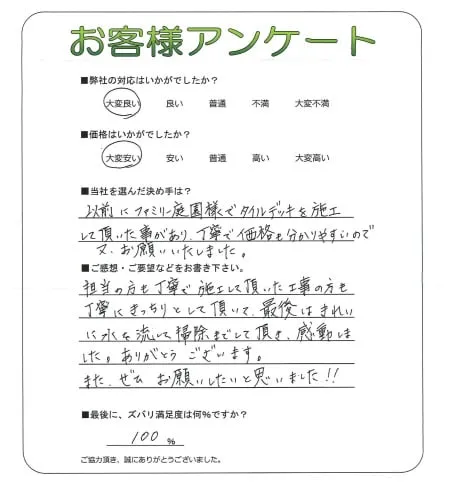 お客様アンケート
■弊社の対応はいかがでしたか？
大変良い 良い 普通 不満 大変不満
■価格はいかがでしたか？
大変安い 安い 普通 高い 大変高い
■当社を選んだ決め手は？
以前にファミリー庭園様でタイルデッキを施工
して頂いた事があり、丁寧で価格も分かりやすいので
又、お願いいたしました。
■ご感想・ご要望などをお書き下さい。
担当の方も丁寧で施工して頂いた工事の方も
丁寧にきっちりとして頂いて、最後はきれい
に水を流して掃除までして頂き、感動しま
した。ありがとうございます。
また、ぜひお願いしたいと思いました!!
■最後に、ズバリ満足度は何%ですか？
100 %
ご協力頂き、誠にありがとうございました。